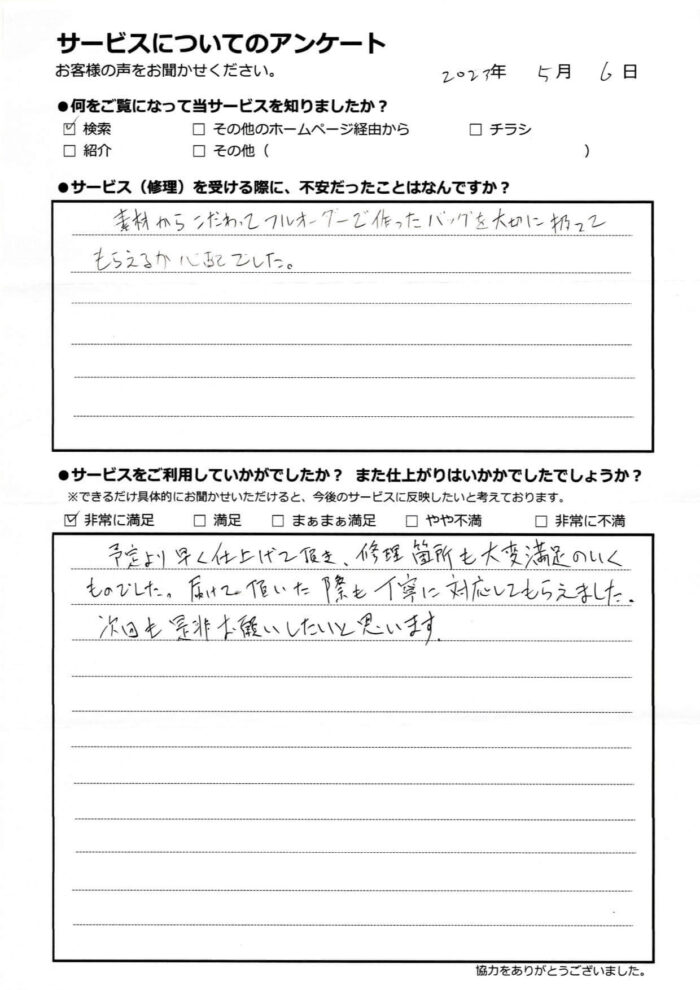 サービスについてのアンケート
お客様の声をお聞かせください。
2023年 5月 6日
●何をご覧になって当サービスを知りましたか？
☑ 検索 □ その他のホームページ経由から □ チラシ
□ 紹介 □ その他（ ）
●サービス（修理）を受ける際に、不安だったことはなんですか？
素材からこだわってフルオーダーで作ったバッグを大切に扱って
もらえるか心配でした。
●サービスをご利用していかがでしたか？ また仕上がりはいかかでしたでしょうか？
※できるだけ具体的にお聞かせいただけると、今後のサービスに反映したいと考えております。
☑ 非常に満足 □ 満足 □ まぁまぁ満足 □ やや不満 □ 非常に不満
予定より早く仕上げて頂き、修理箇所も大変満足のいく
ものでした。届けて頂いた際も丁寧に対応してもらえました。
次回も是非お願いしたいと思います。
協力をありがとうございました。